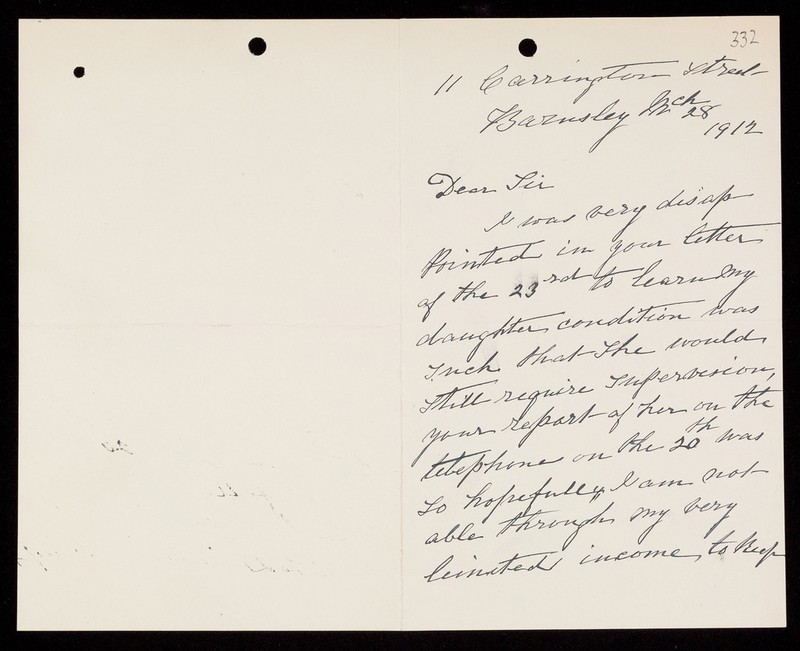 332
11 Carrington Street
Barnsley Mch 28
1912
Dear Sir
I was very disap
pointed in your letter
of the 23rd to learn my
daughter condition was
such that she would
still require supervision,
your report of her on the
telephone on the 20th was
so hopefully, I am not
able through my very
leimited income, to keep